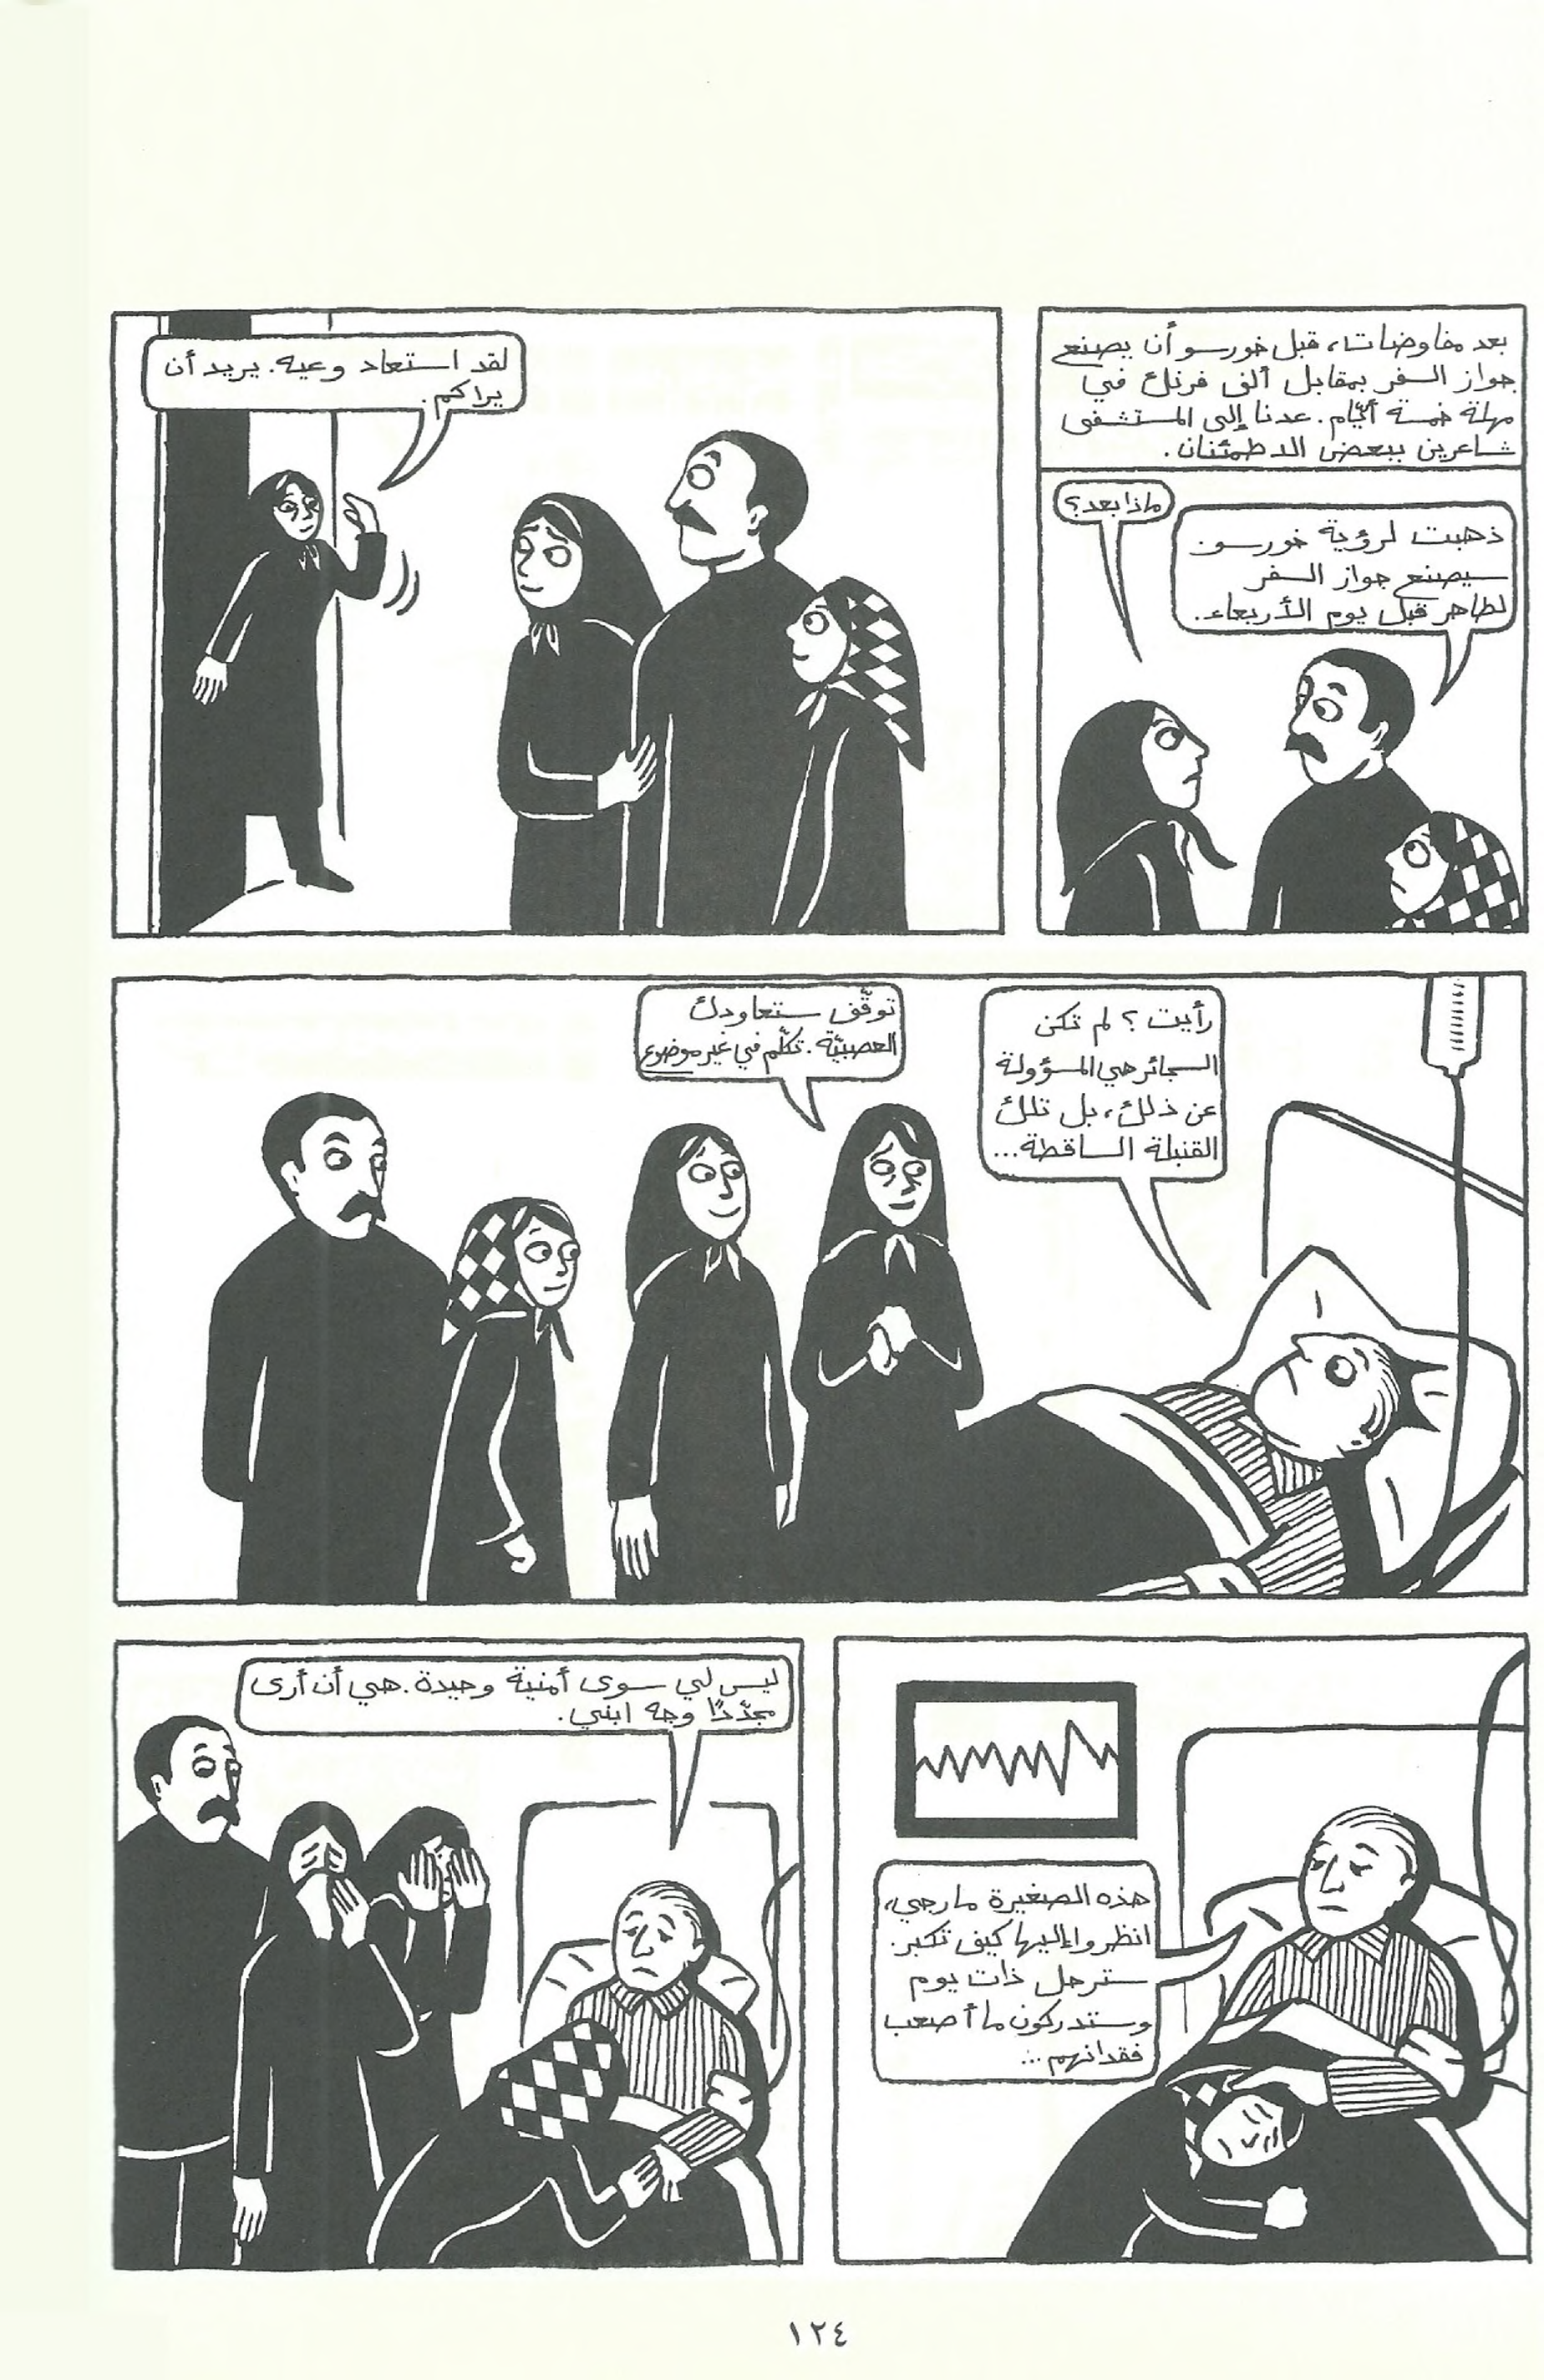 بعد مفاوضات، قبل خورسو أن يصنع
جواز السفر بمقابل ألف فرنك في
مهلة خمسة أيّام. عدنا إلى المستشفى
شاعرين ببعض الاطمئنان.
ماذا بعد؟
ذهبت لرؤية خورسو
سيصنع جواز السفر
لطاهر قبل يوم الأربعاء.
لقد استعاد وعيه. يريد أن
يراكم.
رأيت؟ لم تكن
السجائر هي المسؤولة
عن ذلك، بل تلك
القنبلة الساقطة...
توقّف ستعاودك
العصبيّة. تكلّم في غير موضوع
هذه الصغيرة مارجي،
انظروا إليها كيف تكبر.
سترحل ذات يوم
وستدركون ما أصعب
فقدانهم...
ليس لي سوى أمنية وحيدة. هي أن أرى
مجدّدًا وجه ابني.
١٢٤